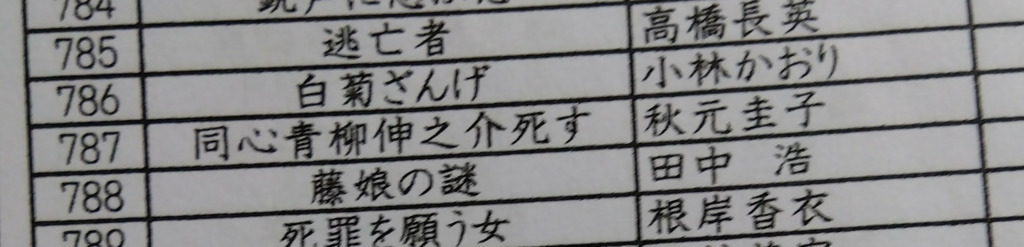 784
785 逃亡者 高橋長英
786 白菊ざんげ 小林かおり
787 同心青柳伸之介死す 秋元圭子
788 藤娘の謎 田中 浩
789 死罪を願う女 根岸香衣